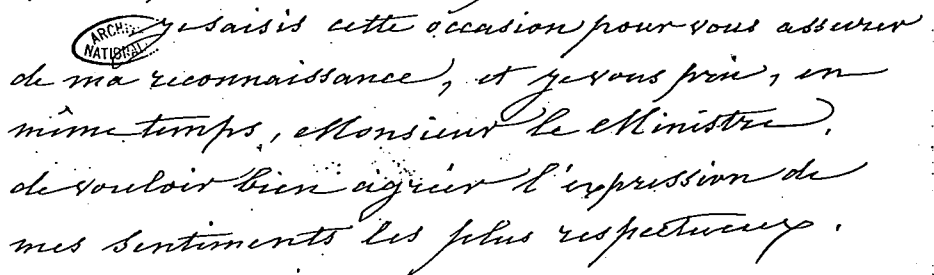 je saisis cette occasion pour vous assurer
ARCHI
NATIONAL
de ma reconnaissance, et je vous prie, en
même temps, Monsieur le Ministre,
de vouloir bien agréer l'expression de
mes sentiments les plus respectueux.